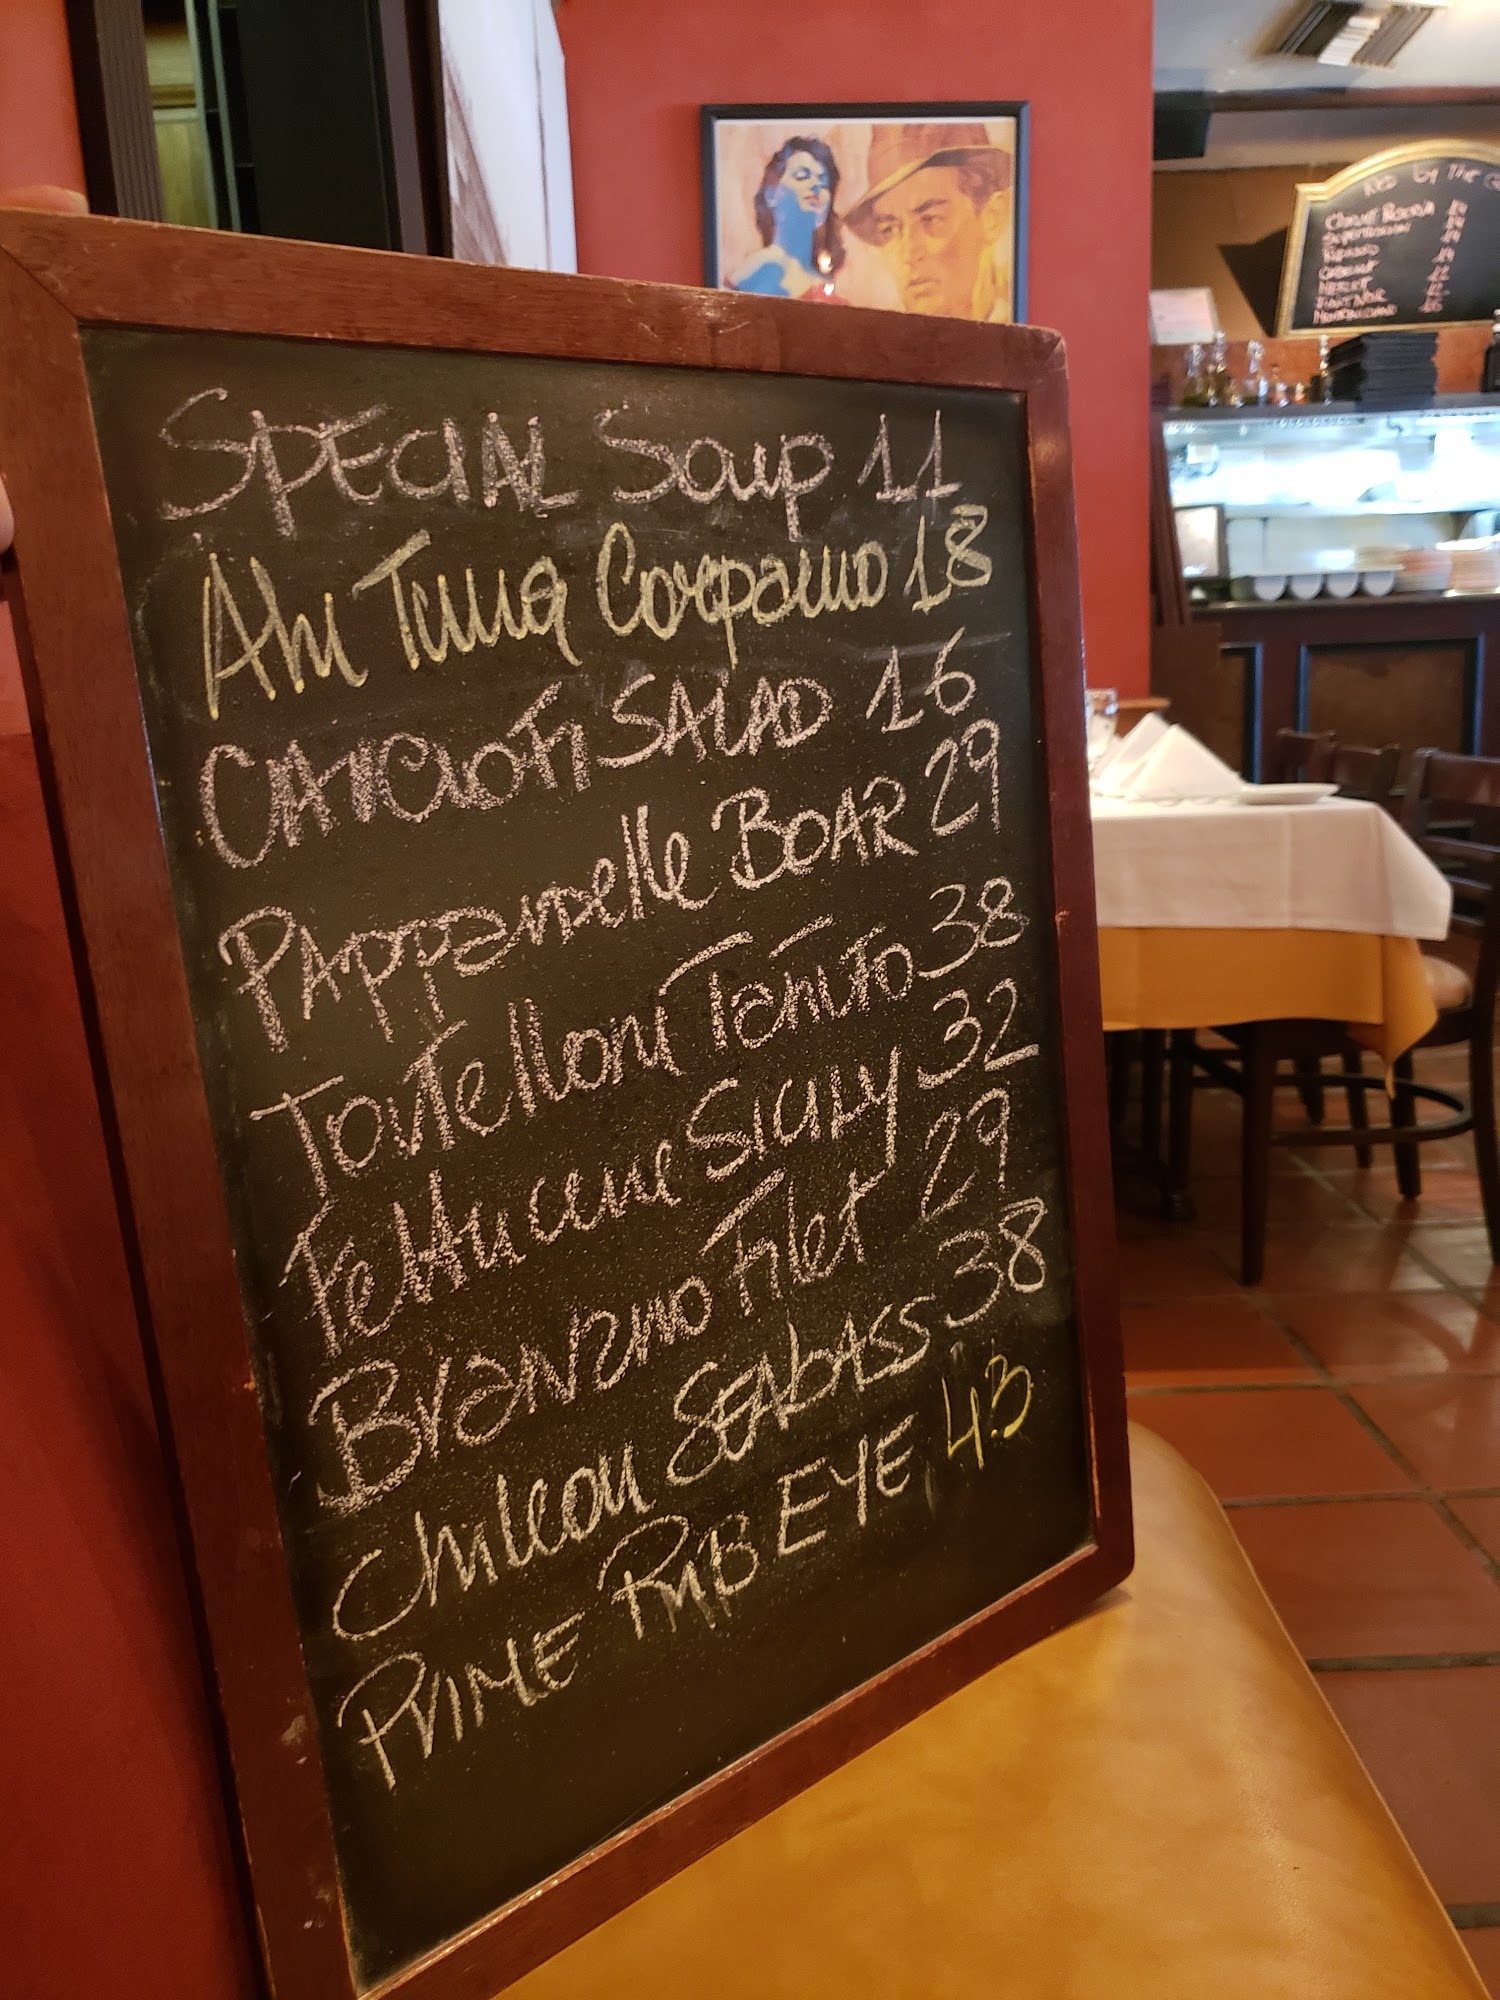 SPECIAL Soup 11
Ahi Tuna Carpaccio 18
CARCIOFI SALAD 16
PAppardelle BOAR 29
Tortelloni Tartufo 38
Fettuccine SICILY 32
Branzino Filet 29
Chilean SEAbASS 38
PRIME RIB EYE 43
RED by THE
MERLET
PINOT NOIR